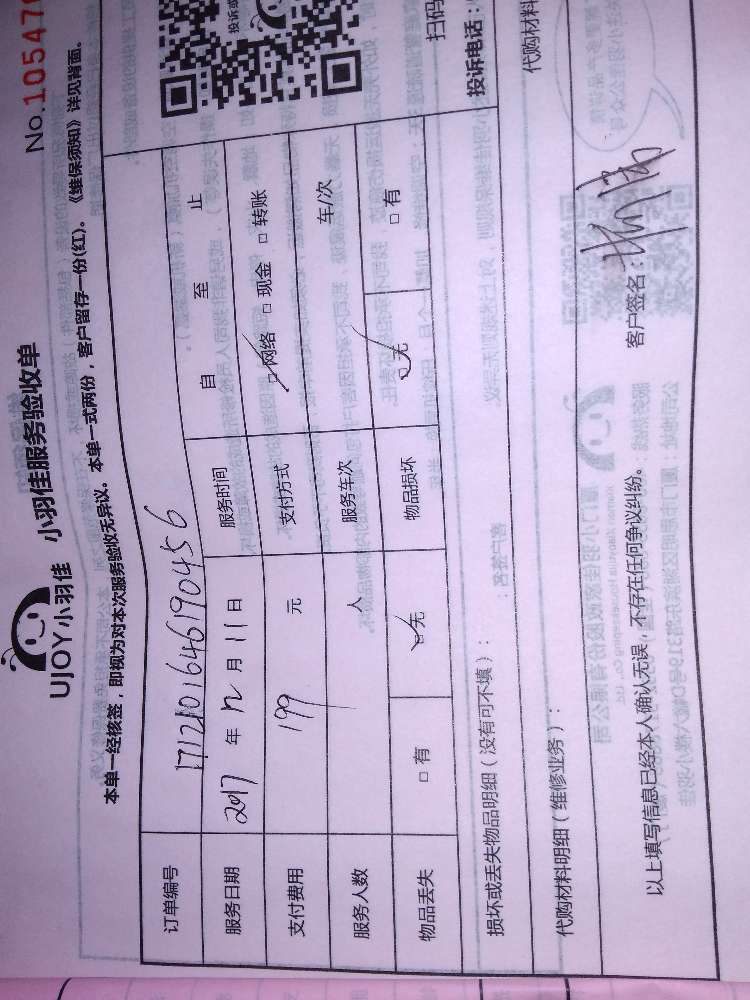 No.10547
UJOY小羽佳 小羽佳服务验收单
本单一经核签，即视为对本次服务验收无异议。本单一式两份，客户留存一份(红)。《维保须知》详见背面。
订单编号 1712101646190456
服务日期 2017 年 12 月 11 日 服务时间 自 至 止
支付费用 199 元 支付方式 □网络 □现金 □转账
服务人数 人 服务车次 车/次
物品丢失 □有 □无 物品损坏 □无 □有
损坏或丢失物品明细（没有可不填）：
代购材料明细（维修业务）： 代购材料
以上填写信息已经本人确认无误，不存在任何争议纠纷。 客户签名：
扫码
投诉电话：